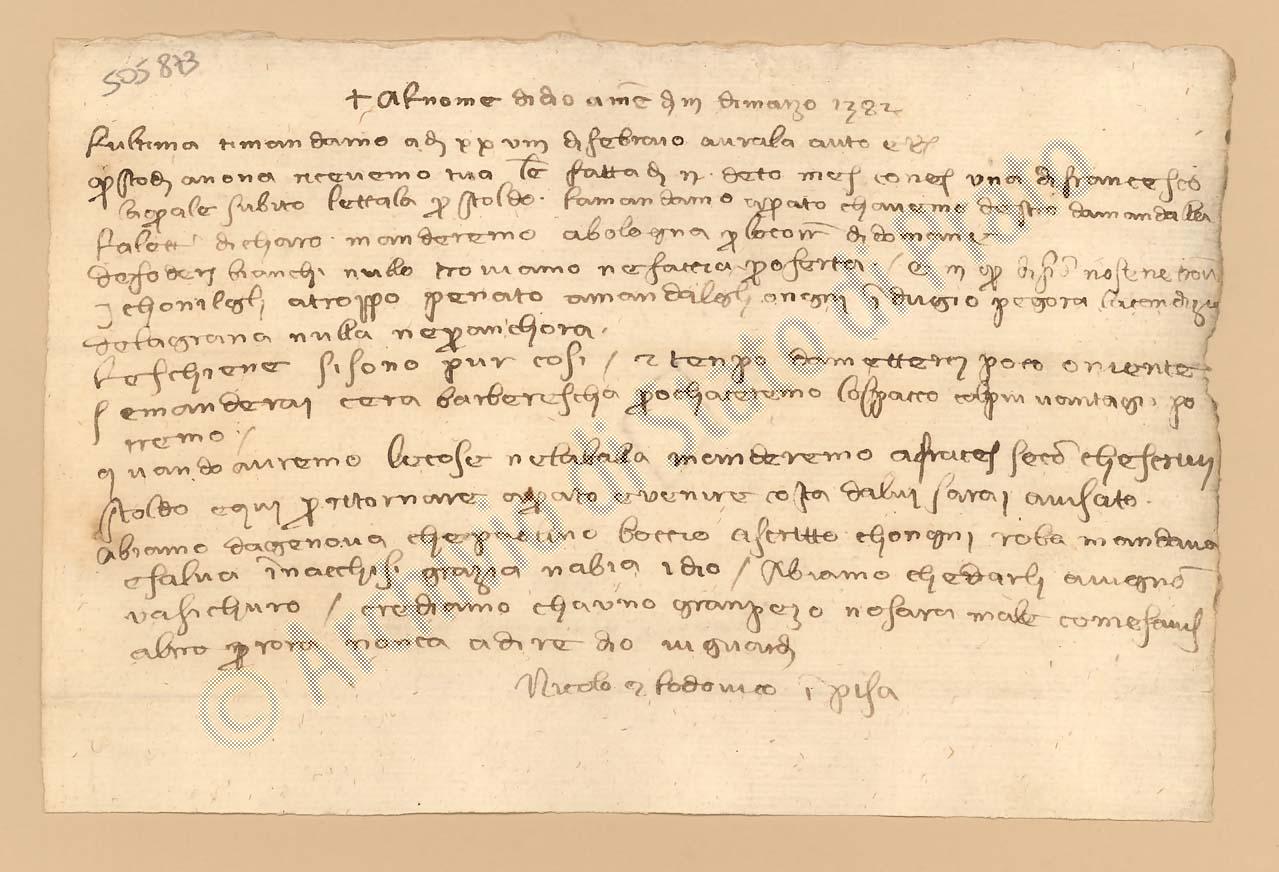 505873
+ Al nome di dio amē dì III di marzo 1382
L'ultima ti mandamo a dì XXVIII di febraio avrala auto e
questo dì a nona ricevemo tua lē fatta dì II deto mes con es una di francescho
la quale subito letta la per stoldo. la mandamo a prato chavemo destro da mandalla
di charo manderemo a bologna per lo corr di domane
de foderi bianchi nullo troviamo ne faccia proferta / e
i chonilgli a troppo penato a mandalgli ongni īdugio pegora
de la grana nulla ne per anchora.
le schiene si sono pur cosi / e tenpo da metterci poco o niente
se manderai cera barberescha prochaceremo lo spacco col piu vantagi po
tremo /
quando avremo le cose ne la manderemo a fraces secō che scrivi
stoldo e qui per ritornare a prato e venire costa da lui sarai avisato.
abiamo da genova che paolino boccio a scritto ch ongni roba mandava
e salva īn acchisi grazia n abia idio / Abiamo che d arli a vignō
va sichuro / crediamo ch a uno gran pezo no sara male come savis
altro per rora nonca a dire dio vi guardi
Nicolo e lodovico ī pisa
© Archivio di Stato di Prato